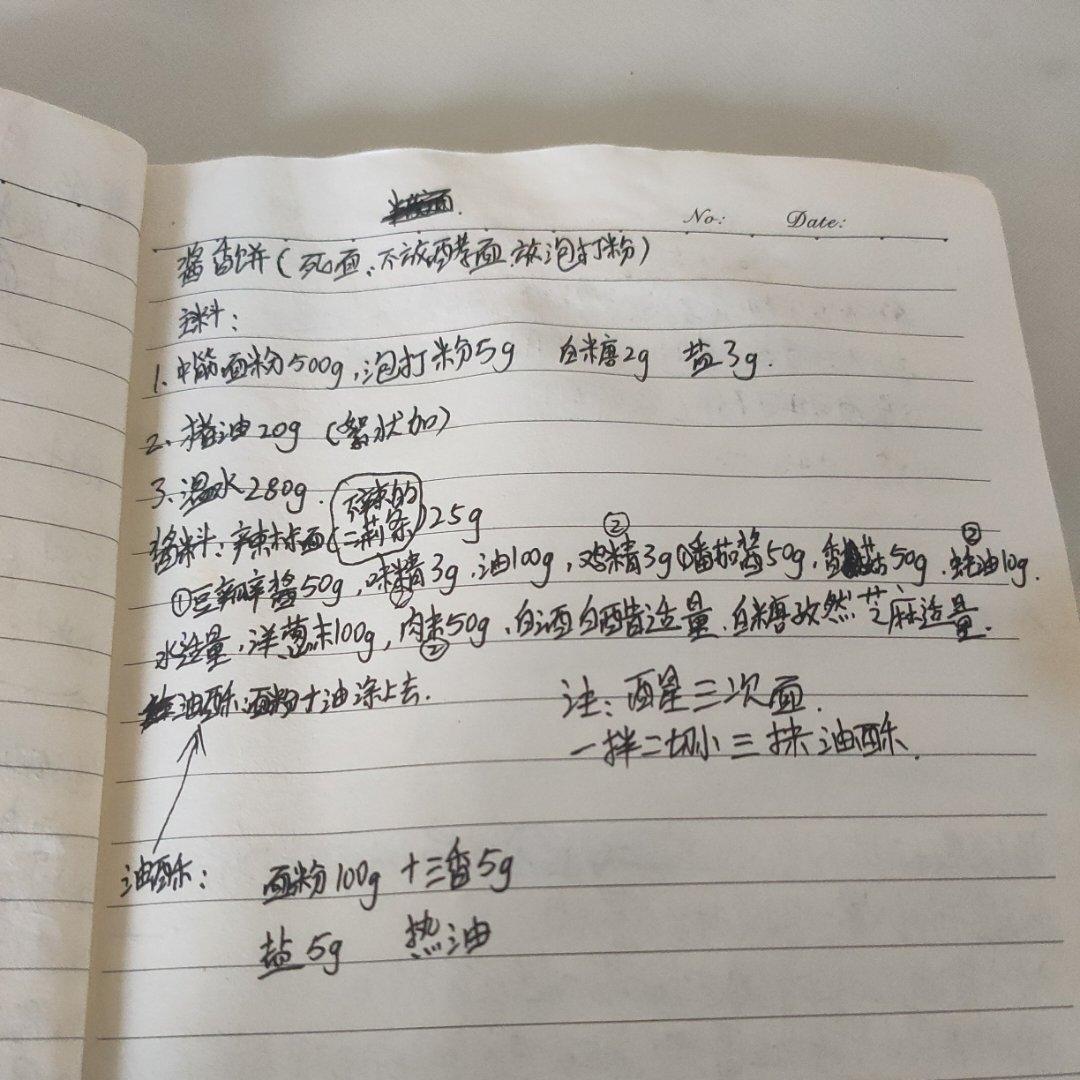 No: Date:
酱香饼(死面、不放酵面、放泡打粉)
主料:
1、中筋面粉500g,泡打粉5g 白糖2g 盐3g.
2、猪油20g (絮状加)
3、温水280g.
酱料:辣椒面(不辣的二荆条)25g
①豆瓣酱50g,味精②3g,油100g,鸡精②3g①番茄酱50g,香菇50g、蚝油②10g.
水适量,洋葱末100g,肉末②50g、白酒白醋适量、白糖孜然芝麻适量.
油酥:面粉+油涂上去.
注:醒三次面.
一拌二切小三抹油酥.
油酥: 面粉100g 十三香5g
盐5g 热油